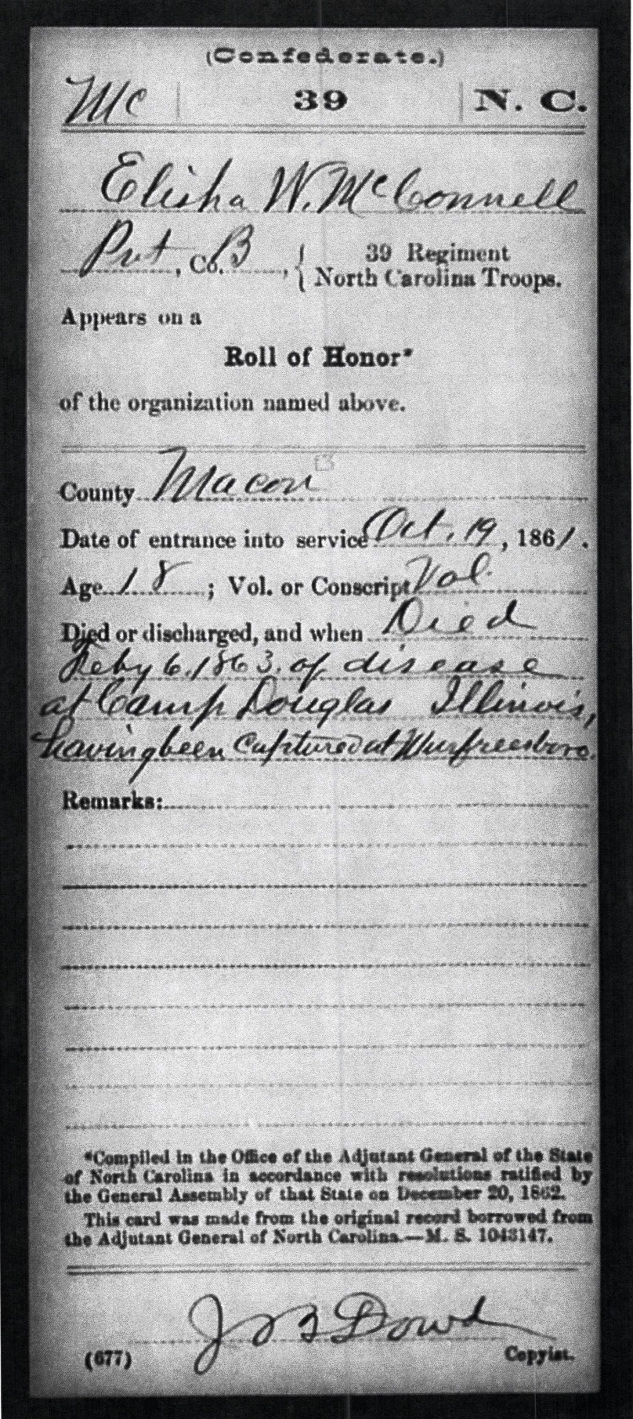 (Confederate.)
Mc | 39 | N. C.
Elisha W. McConnell
Pvt, Co. B, { 39 Regiment
North Carolina Troops.
Appears on a
Roll of Honor*
of the organization named above.
County Macon
Date of entrance into service Oct. 19, 1861.
Age 18; Vol. or Conscript Vol.
Died or discharged, and when Died
Feby 6, 1863, of disease
at Camp Douglas Illinois,
having been Captured at Murfreesboro.
Remarks:
*Compiled in the Office of the Adjutant General of the State
of North Carolina in accordance with resolutions ratified by
the General Assembly of that State on December 20, 1862.
This card was made from the original record borrowed from
the Adjutant General of North Carolina.—M. S. 1043147.
J B Dowd
(677) Copyist.